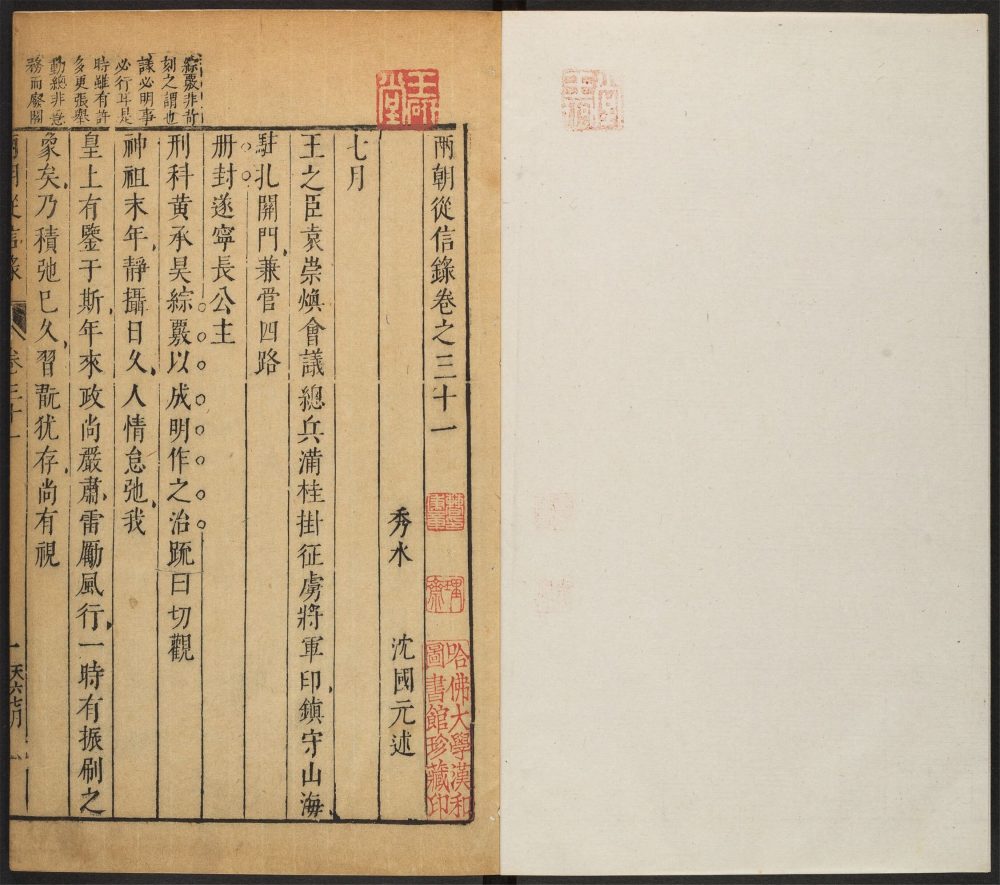 兩朝從信錄卷之三十一
秀水 沈國元述
七月
王之臣袁崇煥會議總兵滿桂掛征虜將軍印鎮守山海
駐札關門兼管四路
册封遂寧長公主
刑科黃承昊綜覈以成明作之治䟽曰切觀
神祖末年靜攝日久人情怠弛我
皇上有鑒于斯年來政尚嚴肅雷勵風行一時有振刷之
象矣乃積弛巳久習翫犹存尚有視
綜覈非苛
刻之謂也
議必明事
必行耳是
時雖有許
多更張舉
動總非急
務而廢閣
兩朝從信錄
卷三十一
一
天六七月
玉研堂
哈佛大學漢和
圖書館珍藏印